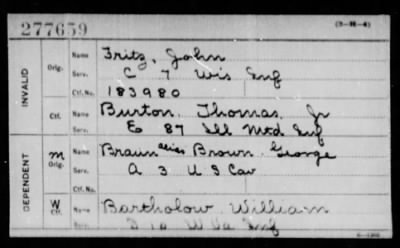 277659
(3-H-4)
INVALID
Orig.
Name Fritz, John
Serv. C 7 Wis Inf
Ctf. No. 183980
Ctf.
Name Burton, Thomas, Jr
Serv. E 87 Ill Mtd Inf
DEPENDENT
m
Orig.
Name Braun alias Brown George
Serv. A 3 U S Cav
Ctf. No.
W
Ctf.
Name Bartholow William
Serv. W Va Inf